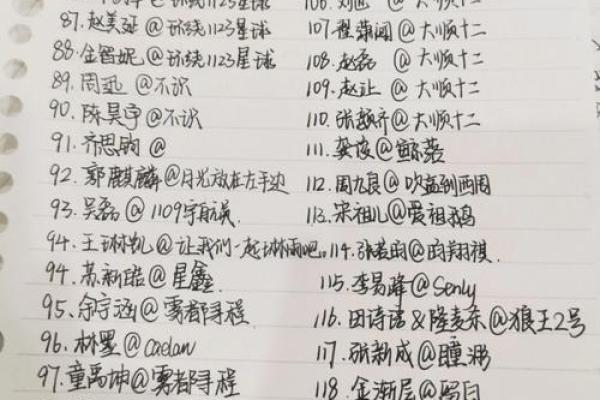 87. 赵美延 @环绕1123星球
88. 金智妮 @环绕1123星球
89. 周迅 @不识
90. 陈昊宇@不识
91. 齐思钧 @
92. 郭麒麟@月光放在左手边
93. 吴磊@1109宇航员
94. 王琳凯@让我们一起淋雨吧。
94. 苏新皓@星鑫
95. 余宇涵@雾都寻程
96. 林墨@caelan
97. 童禹坤@雾都寻程
@大顺十二
107. 程潇 @大顺十二
108. 赵磊 @大顺十二
109. 赵让 @大顺十二
110. 张颜齐@大顺十二
111. 龚俊@
112. 周九良@吹盏到西周
113. 宋祖儿@爱祖鹅
114. 张若昀@昀翔祺.
115. 李易峰@Senly
116. 田诗诺&隆麦东@狼王2号
117. 张新成@瞳
118. 金渐层@